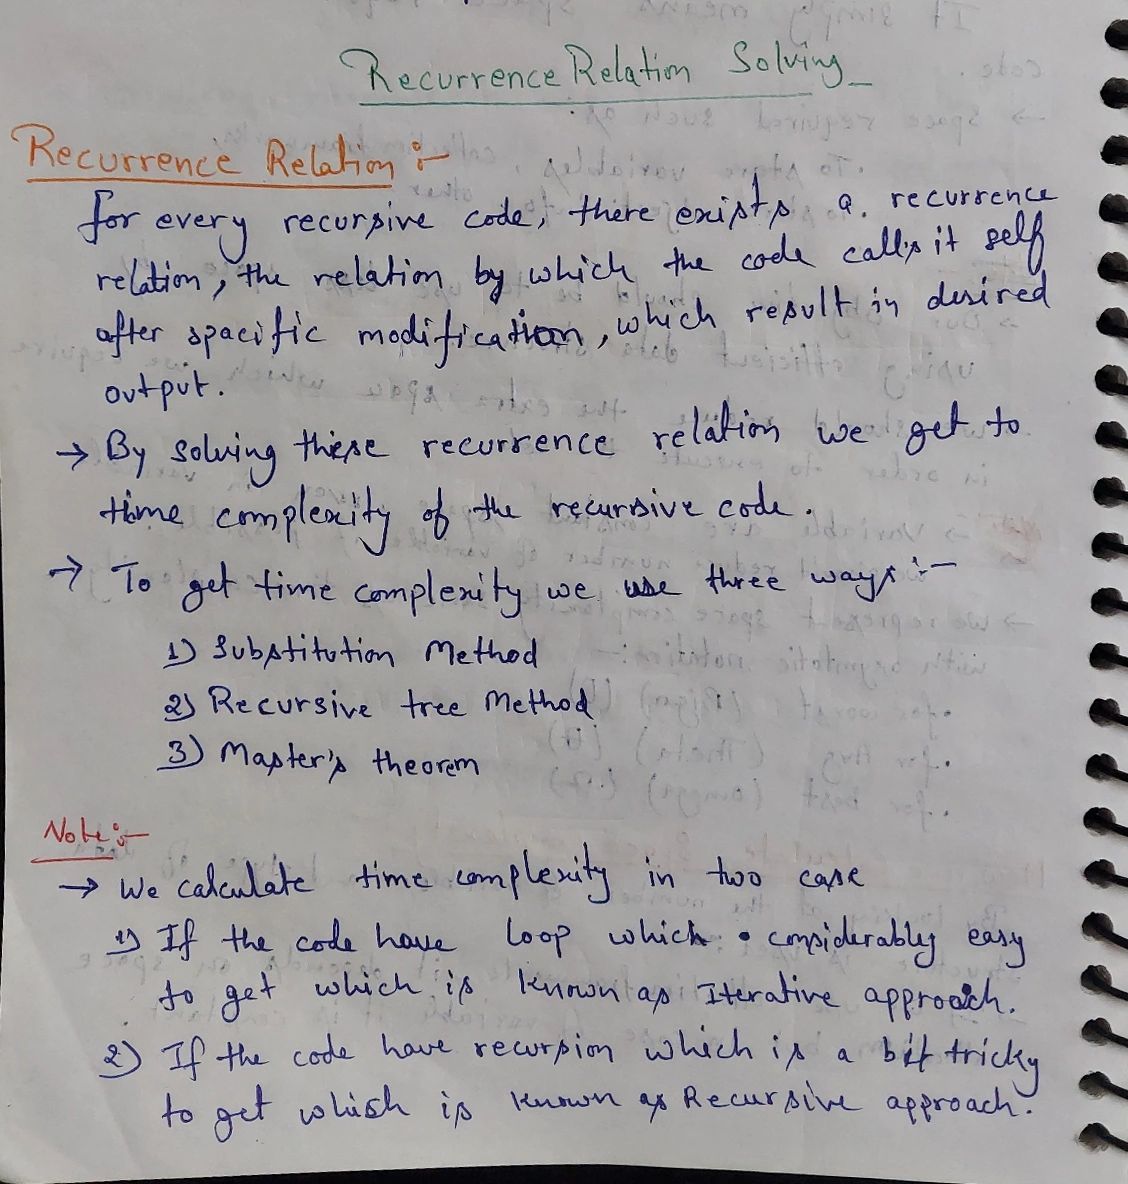 Recurrence Relation Solving
Recurrence Relation :-
for every recursive code, there exists a. recurrence
relation, the relation by which the code calls it self
after spacific modification, which result in desired
output.
→ By solving these recurrence relation we get to
time complexity of the recursive code.
→ To get time complexity we use three ways :-
1) Substitution Method
2) Recursive tree Method
3) Master's theorem
Note :-
→ We calculate time complexity in two case
1) If the code have loop which considerably easy
to get which is known as Iterative approach.
2) If the code have recursion which is a bit tricky
to get which is known as Recursive approach.